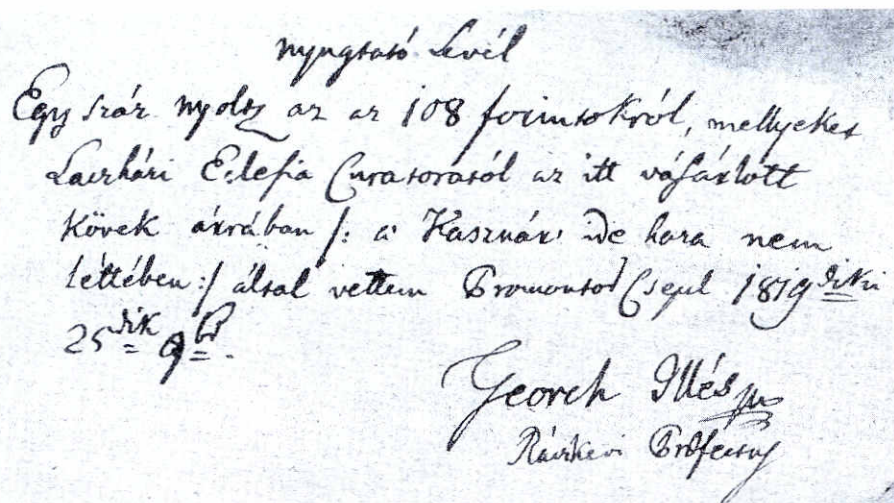 nyugtató Levél
Egy száz nyoltz az az 108 forintokról, mellyeket
Laczházi Eclesia Curatorától az itt vásárlott
kövek árrában /: a' Kasznár' ide haza nem
léttében :/ által vettem Promontor Csepel 1819diki
25dik 9br.
Georch Illés mp
Ráczkevi Præfectus